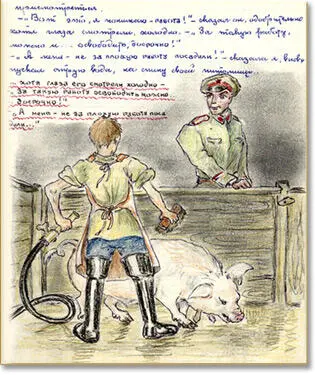 присмотреться
"Вот это, я понимаю - работа!" - сказал он, одобрительно
хотя глаза смотрели холодно, - "За такую работу,
можно и... освободить, досрочно!"
- "А меня - не за плохую работу посадили!" - сказала я,
струю воды, на спину своей питомицы.
- хотя глаза его смотрели холодно -
За такую работу освободить можно
досрочно!"
"А меня - не за плохую работу поса
дили...